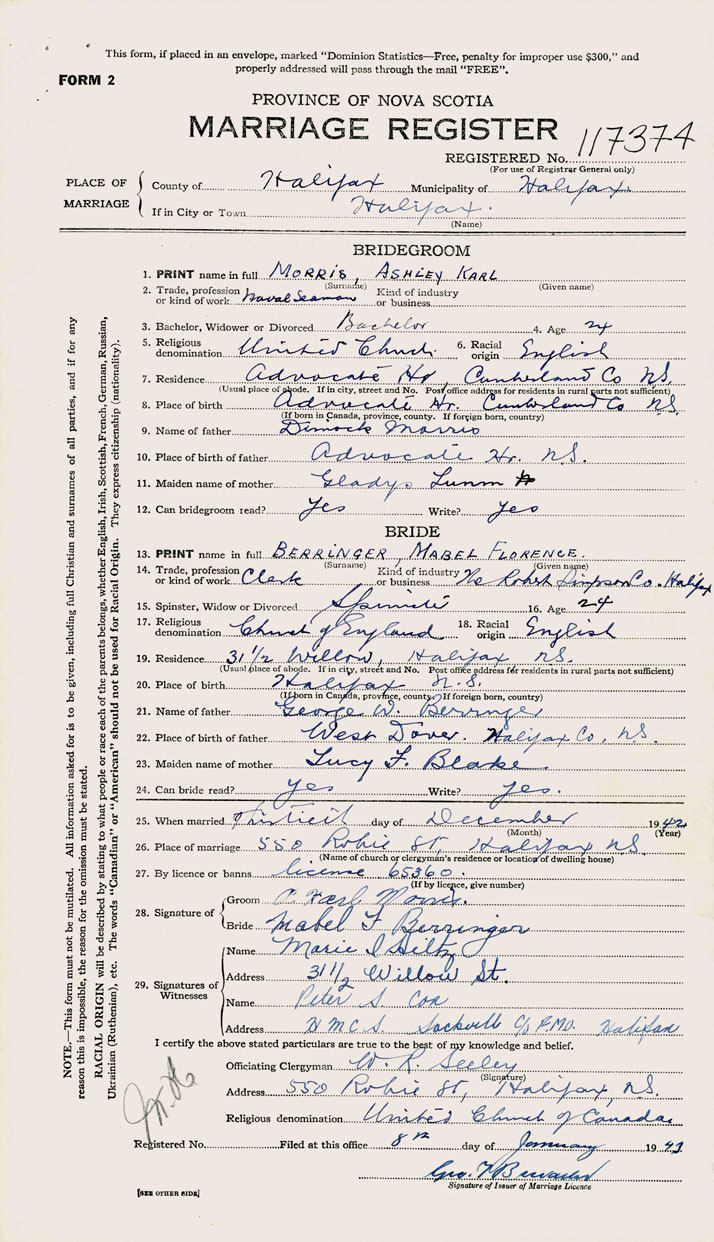 This form, if placed in an envelope, marked "Dominion Statistics—Free, penalty for improper use $300," and
properly addressed will pass through the mail "FREE".
FORM 2
PROVINCE OF NOVA SCOTIA
MARRIAGE REGISTER
REGISTERED No. 117374
(For use of Registrar General only)
PLACE OF MARRIAGE
County of Halifax Municipality of Halifax
If in City or Town Halifax.
(Name)
BRIDEGROOM
1. PRINT name in full MORRIS, ASHLEY KARL
(Surname) (Given name)
2. Trade, profession or kind of work Naval Seaman Kind of industry or business
3. Bachelor, Widower or Divorced Bachelor 4. Age 24
5. Religious denomination United Church 6. Racial origin English
7. Residence Advocate Hr, Cumberland Co N.S.
(Usual place of abode. If in city, street and No. Post office address for residents in rural parts not sufficient)
8. Place of birth Advocate Hr. Cumberland Co N.S.
(If born in Canada, province, county. If foreign born, country)
9. Name of father Dimock Morris
10. Place of birth of father Advocate Hr. N.S.
11. Maiden name of mother Gladys
12. Can bridegroom read? Yes Write? Yes
BRIDE
13. PRINT name in full BERRINGER, MABEL FLORENCE.
(Surname) (Given name)
14. Trade, profession or kind of work Clerk Kind of industry or business The Robert Simpson Co. Halifax
15. Spinster, Widow or Divorced Spinster 16. Age 24
17. Religious denomination Church of England 18. Racial origin English
19. Residence 31 1/2 Willow, Halifax N.S.
(Usual place of abode. If in city, street and No. Post office address for residents in rural parts not sufficient)
20. Place of birth Halifax N.S.
(If born in Canada, province, county. If foreign born, country)
21. Name of father George W. Berringer
22. Place of birth of father West Dover. Halifax Co, N.S.
23. Maiden name of mother Lucy F. Blake
24. Can bride read? Yes Write? Yes.
25. When married Thirtieth day of December 1942
(Month) (Year)
26. Place of marriage 550 Robie St, Halifax N.S.
(Name of church or clergyman's residence or location of dwelling house)
27. By licence or banns license 65360.
(If by licence, give number)
28. Signature of
Groom A. Karl Morris.
Bride Mabel F Berringer
29. Signatures of Witnesses
Name Marie I Hiltz
Address 31 1/2 Willow St.
Name Peter S. Cox
Address H M C S Sackville C/o F.M.O. Halifax
I certify the above stated particulars are true to the best of my knowledge and belief.
Officiating Clergyman W. R. Seeley
(Signature)
Address 550 Robie St, Halifax, N.S.
Religious denomination United Church of Canada.
Registered No. Filed at this office 8th day of January 1943
Geo.
Signature of Issuer of Marriage Licence
[SEE OTHER SIDE]
NOTE.—This form must not be mutilated. All information asked for is to be given, including full Christian and surnames of all parties, and if for any
reason this is impossible, the reason for the omission must be stated.
RACIAL ORIGIN will be described by stating to what people or race each of the parents belongs, whether English, Irish, Scottish, French, German, Russian,
Ukrainian (Ruthenian), etc. The words "Canadian" or "American" should not be used for Racial Origin. They express citizenship (nationality).